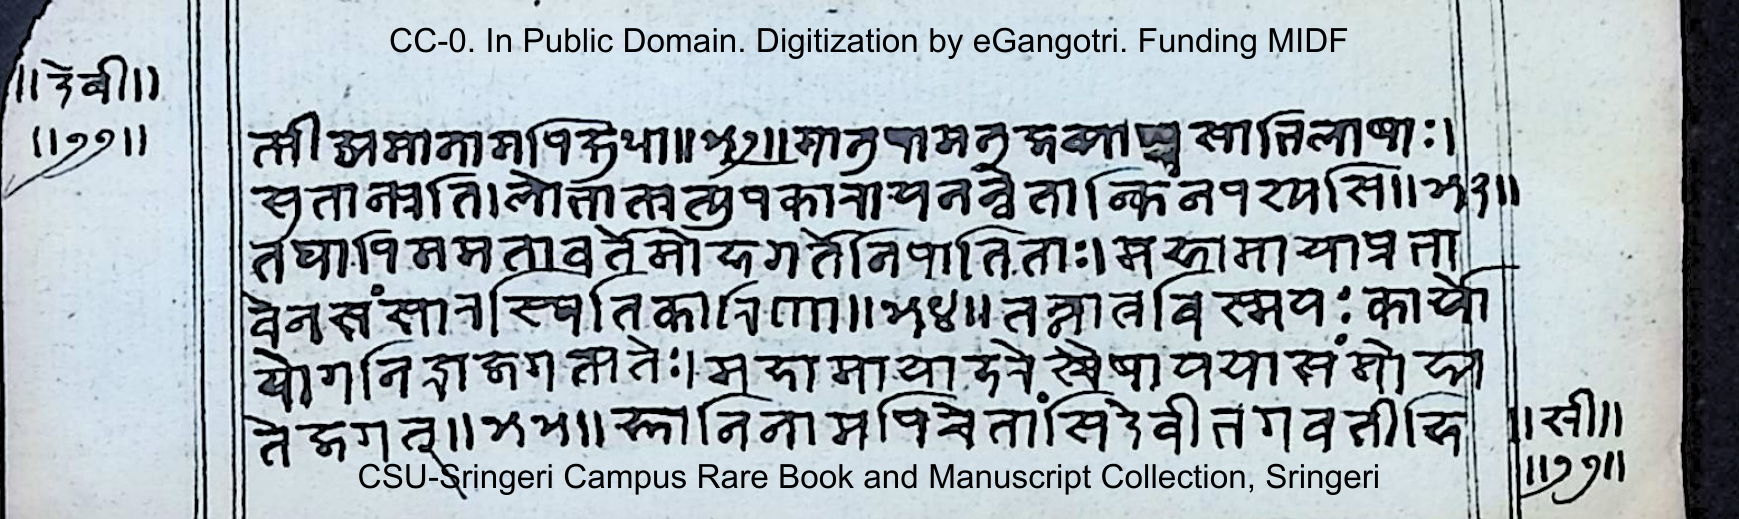 CC-0. In Public Domain. Digitization by eGangotri. Funding MIDF
॥देवी॥
॥११॥
ल्पीअमानामपिद्रुधा॥५२॥मानुषामनुजव्याघ्रसाभिलाषाः।
सुतान्प्रति।लोभात्प्रत्युपकारायनन्वेतान्किंनपश्यसि॥५३॥
तथापिममतावर्तेमोहगर्तेनिपातिताः।महामायाप्रभा
वेनसंसारस्थितिकारिणा॥५४॥तन्नात्रविस्मयःकार्यो
योगनिद्राजगत्पतेः।महामायाहरेश्चैषातयासंमोह्य
तेजगत्॥५५॥ज्ञानिनामपिचेतांसिदेवीभगवतीहि
॥सी॥
॥११॥
CSU-Sringeri Campus Rare Book and Manuscript Collection, Sringeri